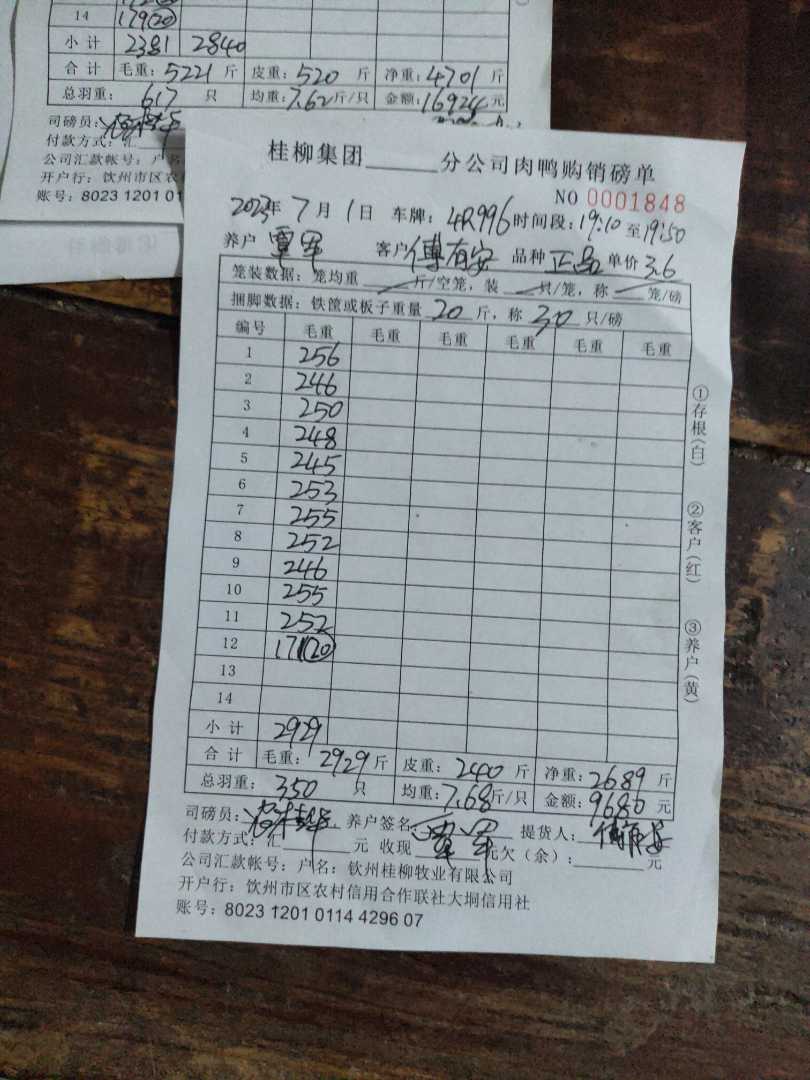 14 179(20)
小计 2381 2840
合计 毛重:5221斤 皮重:520斤 净重:4701斤
总羽重: 617 只 均重:7.62斤/只 金额:16924元
司磅员:
付款方式:汇
公司汇款帐号:户名
开户行:钦州市区农
账号:8023 1201 01
桂柳集团______分公司肉鸭购销磅单
NO 0001848
2023年7月1日 车牌:4R996 时间段:19:10至19:50
养户 覃军 客户 傅有安 品种 正品 单价 3.6
笼装数据:笼均重 斤/空笼,装 只/笼,称 笼/磅
捆脚数据:铁筐或板子重量 20 斤,称 30 只/磅
编号 毛重 毛重 毛重 毛重 毛重 毛重
1 256
2 246
3 250
4 248
5 245
6 253
7 255
8 252
9 246
10 255
11 252
12 171(20)
13
14
小计 2929
合计 毛重:2929斤 皮重:240斤 净重:2689斤
总羽重: 350 只 均重:7.68斤/只 金额:9680元
司磅员: 养户签名 覃军 提货人:傅有安
付款方式:汇______元 收现______元欠(余):______元
公司汇款帐号:户名:钦州桂柳牧业有限公司
开户行:钦州市区农村信用合作联社大垌信用社
账号:8023 1201 0114 4296 07
①存根(白)
②客户(红)
③养户(黄)